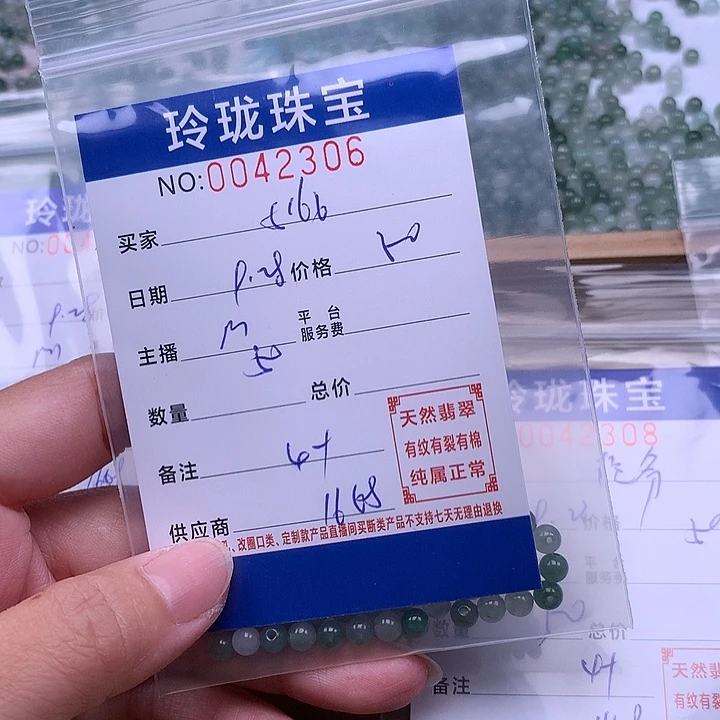 玲珑珠宝
NO:0042306
买家 5166
日期 9.28 价格 50
主播 M 平台服务费
50
数量 总价
备注 4+
供应商 1668
天然翡翠
有纹有裂有棉
纯属正常
、改圈口类、定制款产品直播间买断类产品不支持七天无理由退换
玲珑
NO:
9.28
M
玲珑珠宝
0042308
价格 50
平台
服务费
50
数量 总价
备注 4+
天然翡
有纹有裂